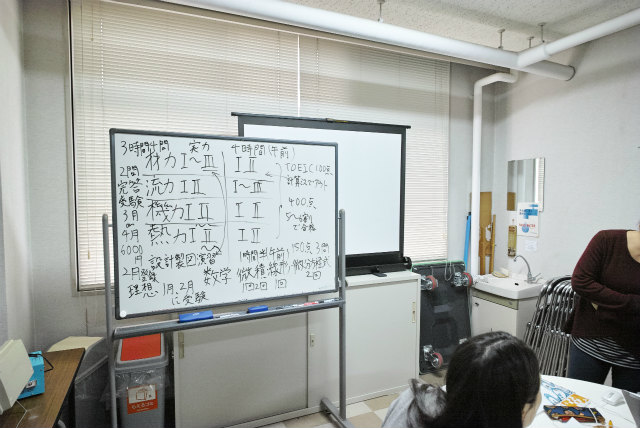 3時間 4問 実力 4時間(午前)
2問 材力 I~III I II TOEIC 100点
完答 流力 I II I~III
受験 機力 I II I II 400点
3月 5~6割で合格
~4月 熱力 I II I II
6000円 設計製図演習 1時間半(午前) 150点 3問
2月 数学 (微積, 線形, 微分方程式
理想 1月, 2月に受験 1回 2回 1回 2回
もえるごみ